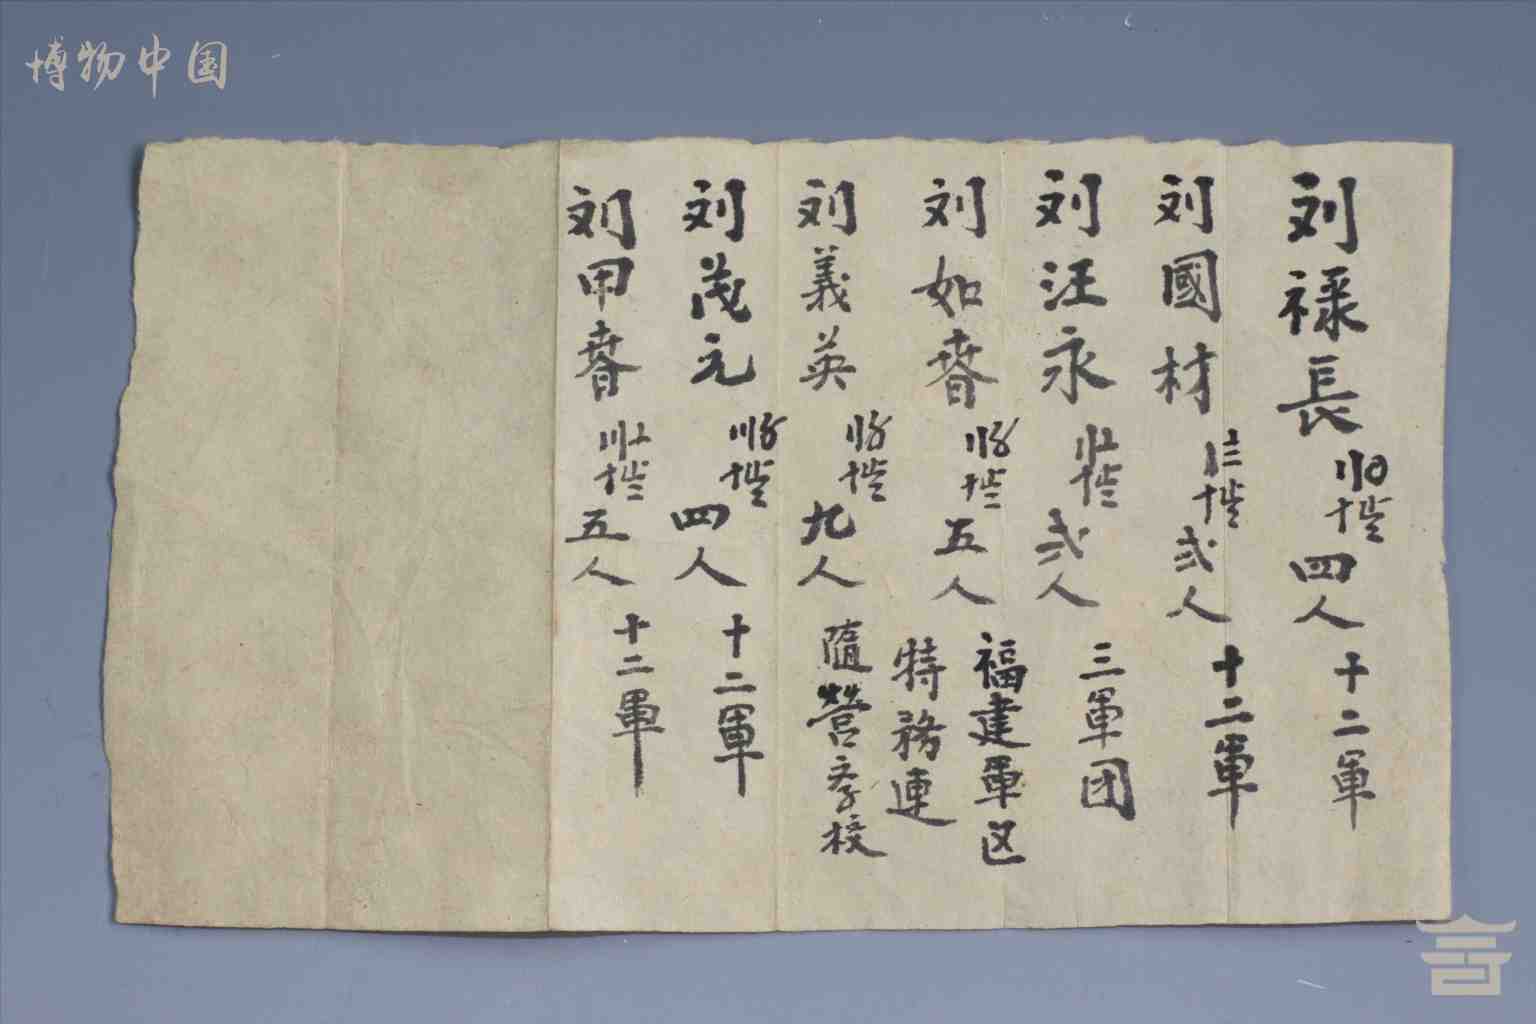 博物中国
刘禄長 四人 十二軍
刘國材 弍人 十二軍
刘汪永 弍人 三軍团
刘如春 五人 福建軍区
特務連
刘義英 九人 隨營学校
刘茂元 四人 十二軍
刘甲春 五人 十二軍